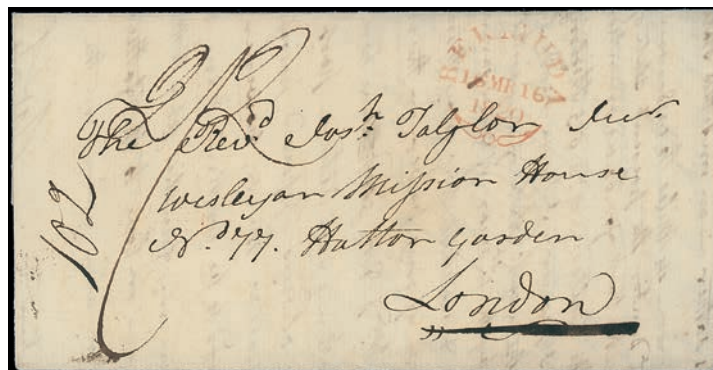 The Revd. Josh. Taylor Junr.
Wesleyan Mission House
No. 77. Hatton Garden
London
102